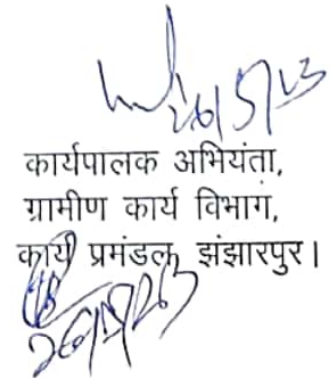 26/5/23
कार्यपालक अभियंता,
ग्रामीण कार्य विभाग,
कार्य प्रमंडल, झंझारपुर।